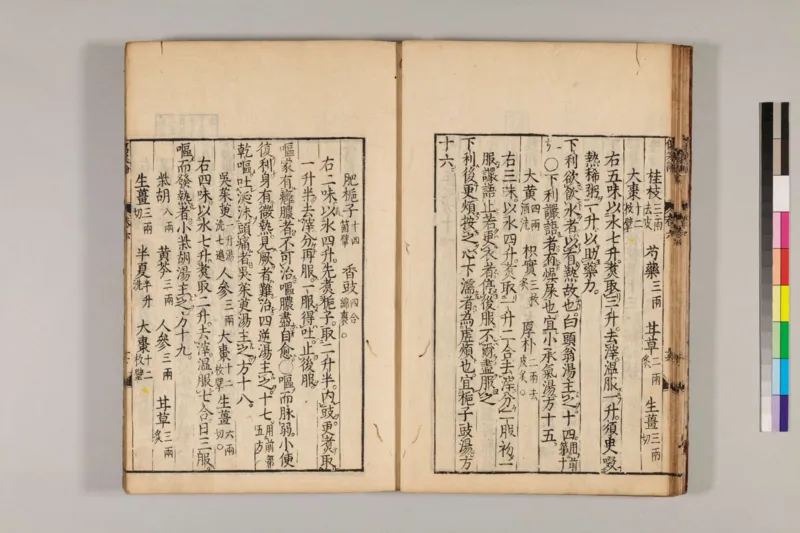 桂枝三兩去皮 芍藥三兩 甘草二兩炙 生薑三兩切
大棗十二枚擘
右五味以水七升煑取三升去滓溫服一升須臾啜
熱稀粥一升以助藥力
下利欲飲水者以有熱故也白頭翁湯主之十四用前第十
○下利讝語者有燥屎也宜小承氣湯方十五
大黃四兩酒洗 枳實三枚炙 厚朴二兩去皮炙
右三味以水四升煑取一升二合去滓分二服初一
服讝語止若更衣者停後服不爾盡服之
下利後更煩按之心下濡者為虛煩也宜梔子豉湯方
十六
肥梔子十四箇擘 香豉四合綿裹
右二味以水四升先煑梔子取二升半內豉更煑取
一升半去滓分再服一服得吐止後服
嘔家有癰膿者不可治嘔膿盡自愈○嘔而脉弱小便
復利身有微熱見厥者難治四逆湯主之十七用前第五方
乾嘔吐涎沫頭痛者吳茱萸湯主之方十八
吳茱萸一升湯洗七遍 人參三兩 大棗十二枚擘 生薑六兩切
右四味以水七升煑取二升去滓溫服七合日三服
嘔而發熱者小柴胡湯主之方十九
柴胡八兩 黃芩三兩 人參三兩 甘草三兩炙
生薑三兩切 半夏半升洗 大棗十二枚擘